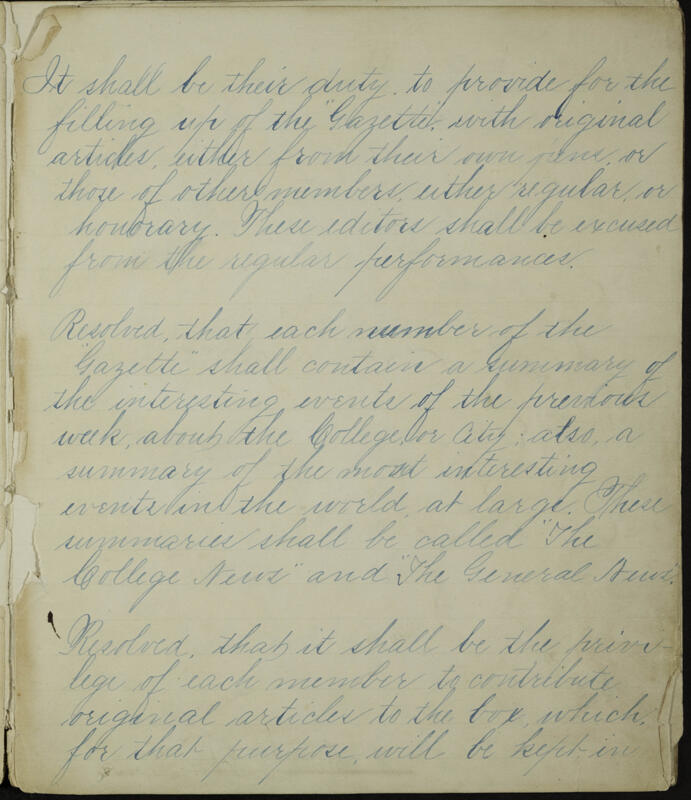 It shall be their duty to provide for the
filling up of the "Gazette", with original
articles, either from their own pens, or
those of other members, either regular, or
honorary. These editors shall be excused
from the regular performances.
Resolved, that each number of the
"Gazette" shall contain a summary of
the interesting events of the previous
week, about the College or City; also, a
summary of the most interesting
events in the world, at large. These
summaries shall be called "The
College News" and "The General News".
Resolved, that it shall be the privi-
lege of each member to contribute
original articles to the box, which,
for that purpose, will be kept in